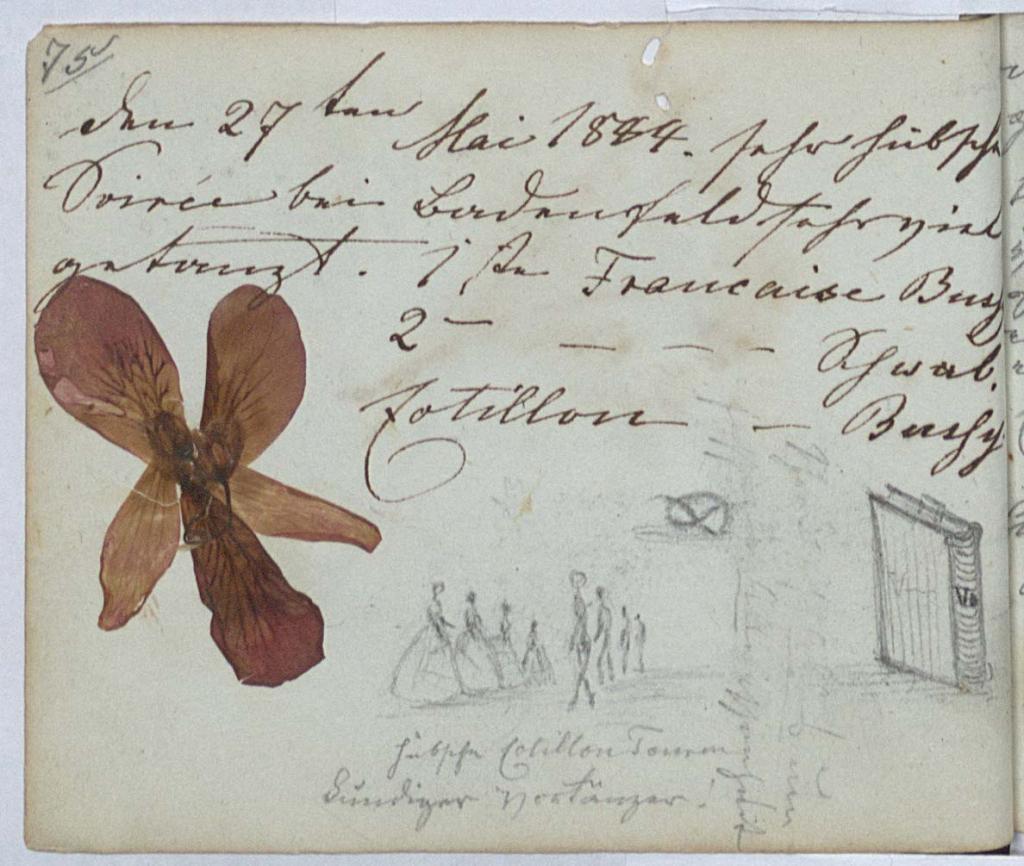 75
den 27ten Mai 1844. sehr hübsche
Soirée bei Badenfeld sehr viel
getanzt. 1ste Francaise Busy
2 — — — — — Schwab.
Cotillon — Buschy
hübsche Cotillon Touren
kundiger Vortänzer!